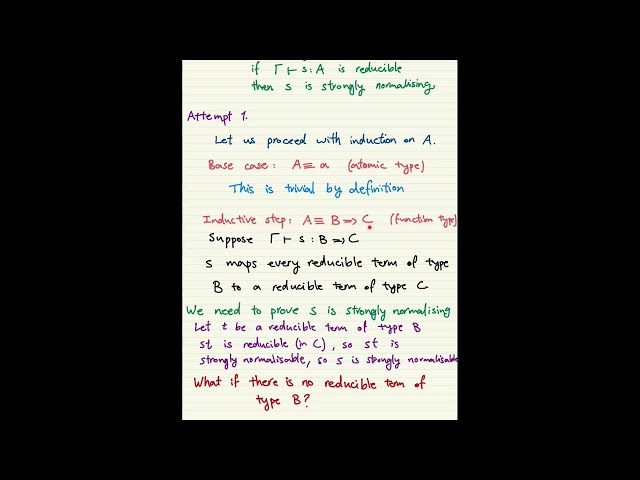 if Γ ⊢ s : A is reducible
then s is strongly normalising
Attempt 1.
Let us proceed with induction on A.
Base case: A ≡ a (atomic type)
This is trivial by definition
Inductive step: A ≡ B ⇒ C (function type)
Suppose Γ ⊢ s : B ⇒ C
s maps every reducible term of type
B to a reducible term of type C
We need to prove s is strongly normalising
Let t be a reducible term of type B
st is reducible (in C), so st is
strongly normalisable, so s is strongly normalisable
What if there is no reducible term of
type B?